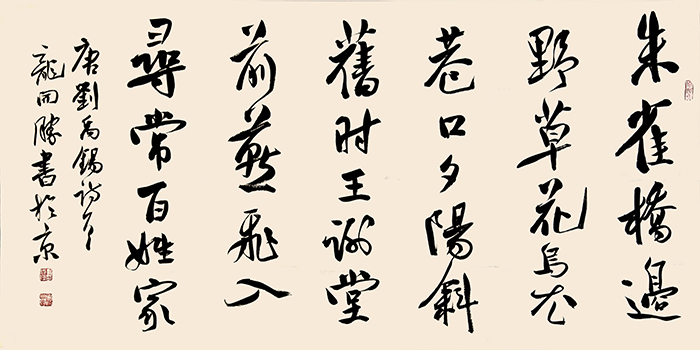 朱雀橋邊
野草花烏衣
巷口夕陽斜
舊时王謝堂
前燕飛入
尋常百姓家
唐劉禹錫詩
龍開勝書於京